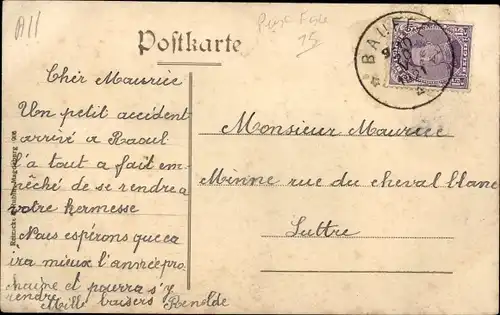 A11
Postkarte
15
BAUFF
BELGIË
Cher Maurice
Un petit accident
arrivé a Raoul
l'a tout a fait em-
pêché de se rendre a
votre kermesse
Nous espérons que ca
ira mieux l'année pro
chaine et pourra s'y
rendre
Mille baisers Renelde
Monsieur Maurice
Minne rue du cheval blanc
Luttre